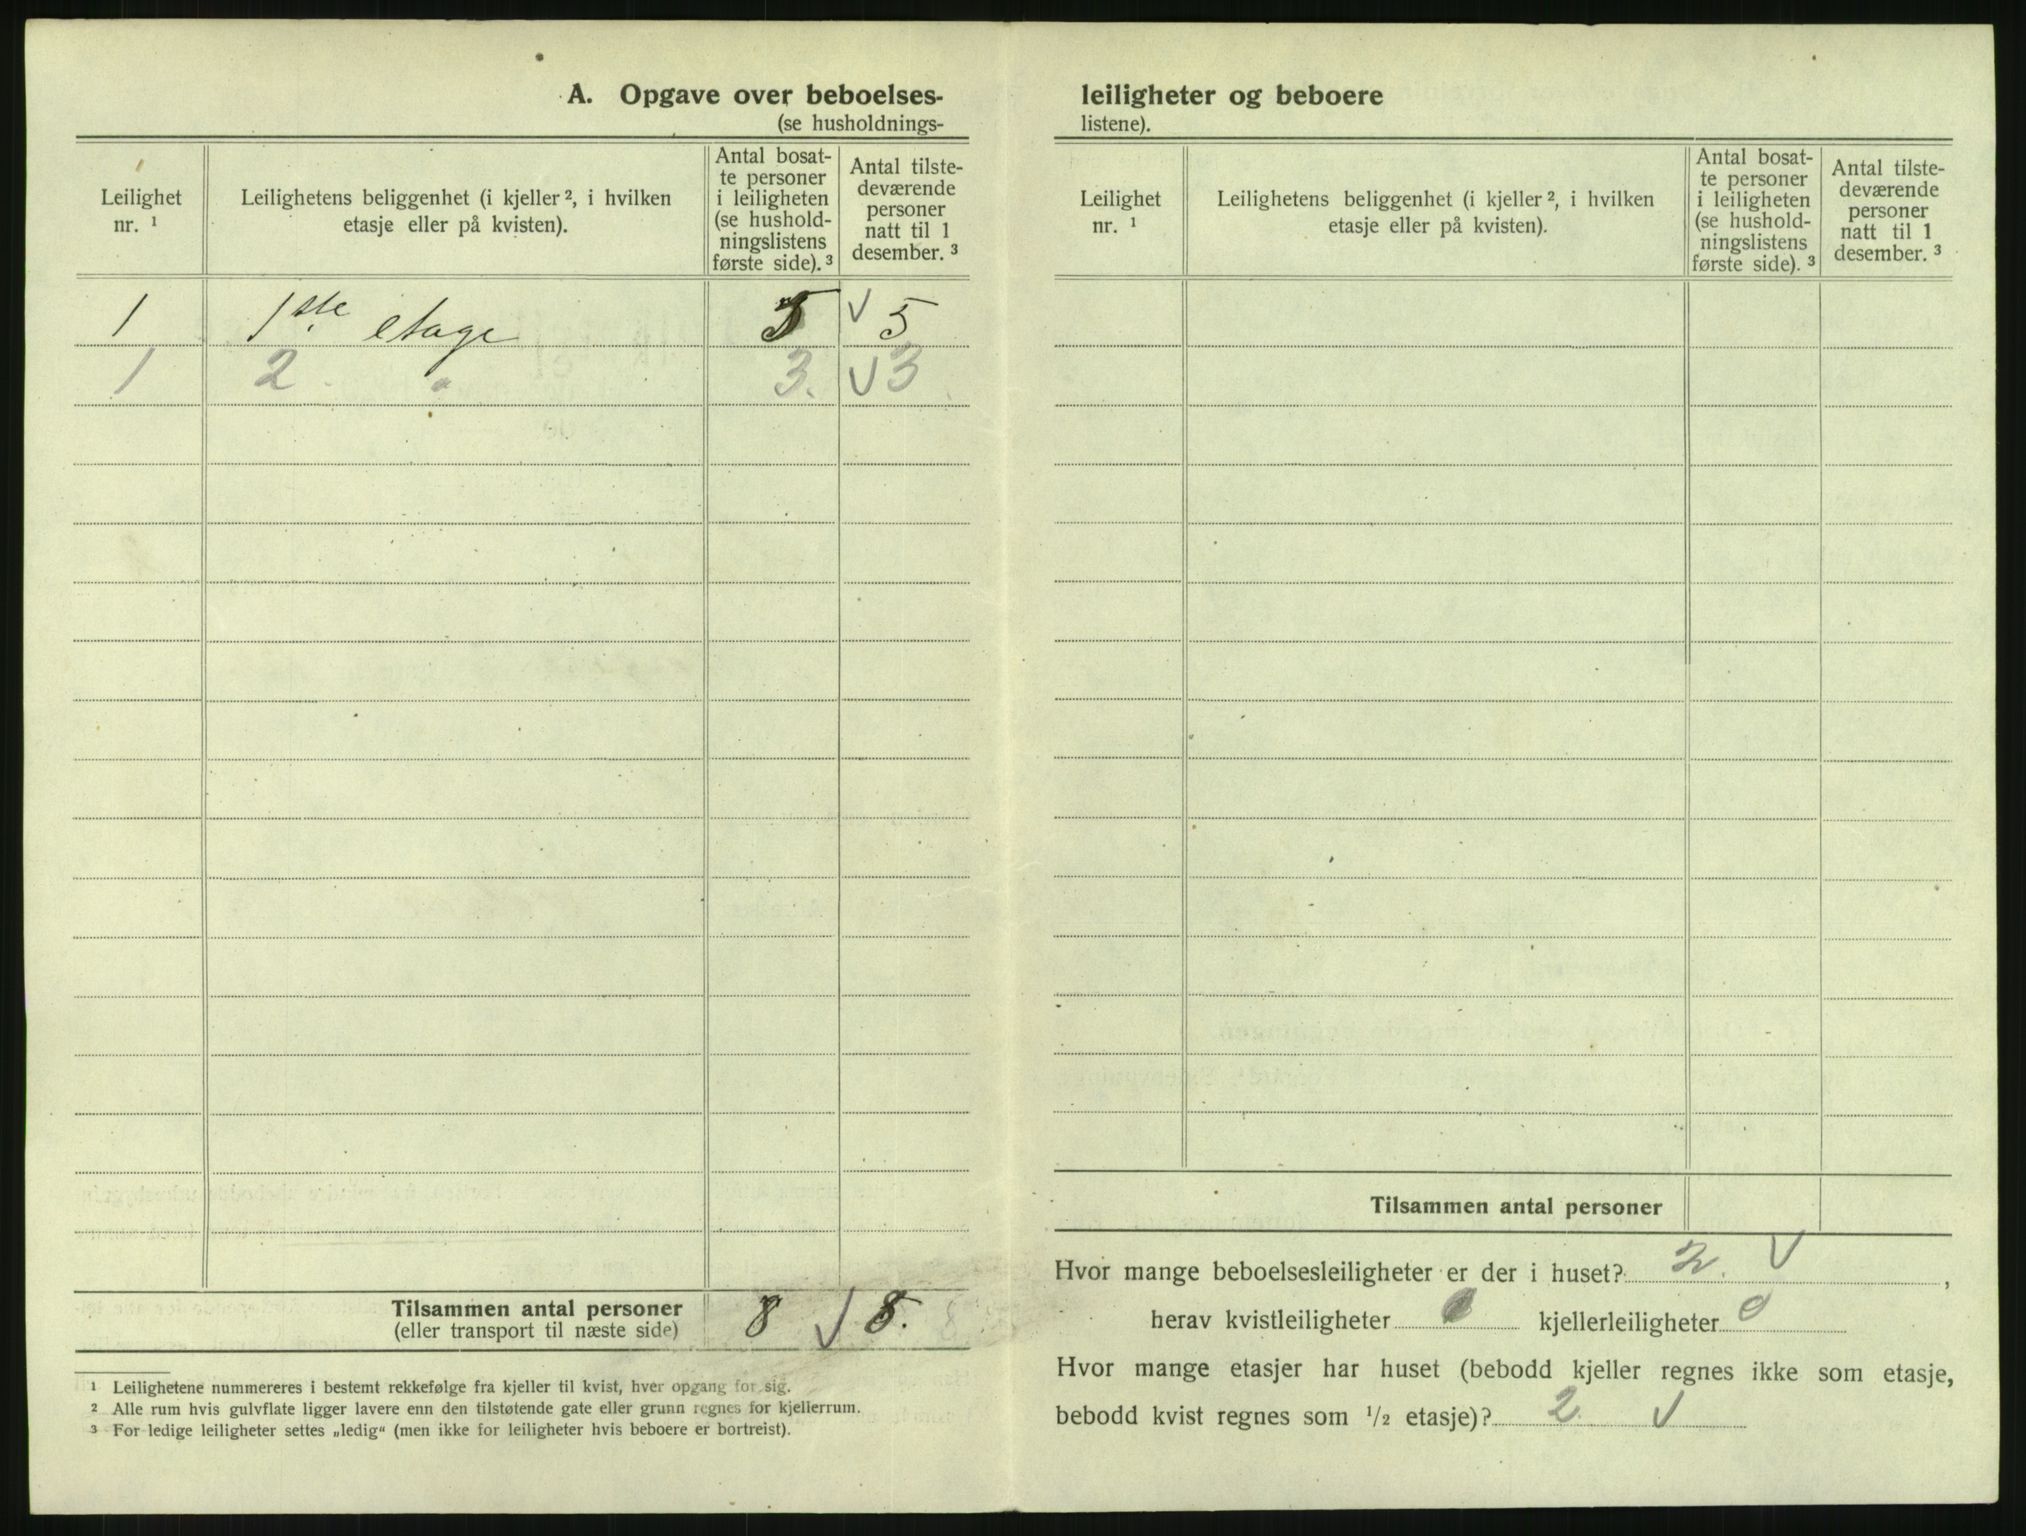 A. Opgave over beboelses-
(se husholdnings-
Leilighet nr. ¹
Leilighetens beliggenhet (i kjeller ², i hvilken etasje eller på kvisten).
Antal bosat-
te personer
i leiligheten
(se hushold-
ningslistens
første side). ³
Antal tilste-
deværende
personer
natt til 1
desember. ³
1 1ste etage 5 √ 5
1 2. " 3. √ 3
Tilsammen antal personer 8 √ 8.
(eller transport til næste side)
¹ Leilighetene nummereres i bestemt rekkefølge fra kjeller til kvist, hver opgang for sig.
² Alle rum hvis gulvflate ligger lavere enn den tilstøtende gate eller grunn regnes for kjellerrum.
³ For ledige leiligheter settes „ledig“ (men ikke for leiligheter hvis beboere er bortreist).
leiligheter og beboere
listene).
Leilighet nr. ¹
Leilighetens beliggenhet (i kjeller ², i hvilken etasje eller på kvisten).
Antal bosat-
te personer
i leiligheten
(se hushold-
ningslistens
første side). ³
Antal tilste-
deværende
personer
natt til 1
desember. ³
Tilsammen antal personer
Hvor mange beboelsesleiligheter er der i huset? 2. √,
herav kvistleiligheter 0 kjellerleiligheter 0
Hvor mange etasjer har huset (bebodd kjeller regnes ikke som etasje,
bebodd kvist regnes som ½ etasje)? 2. √